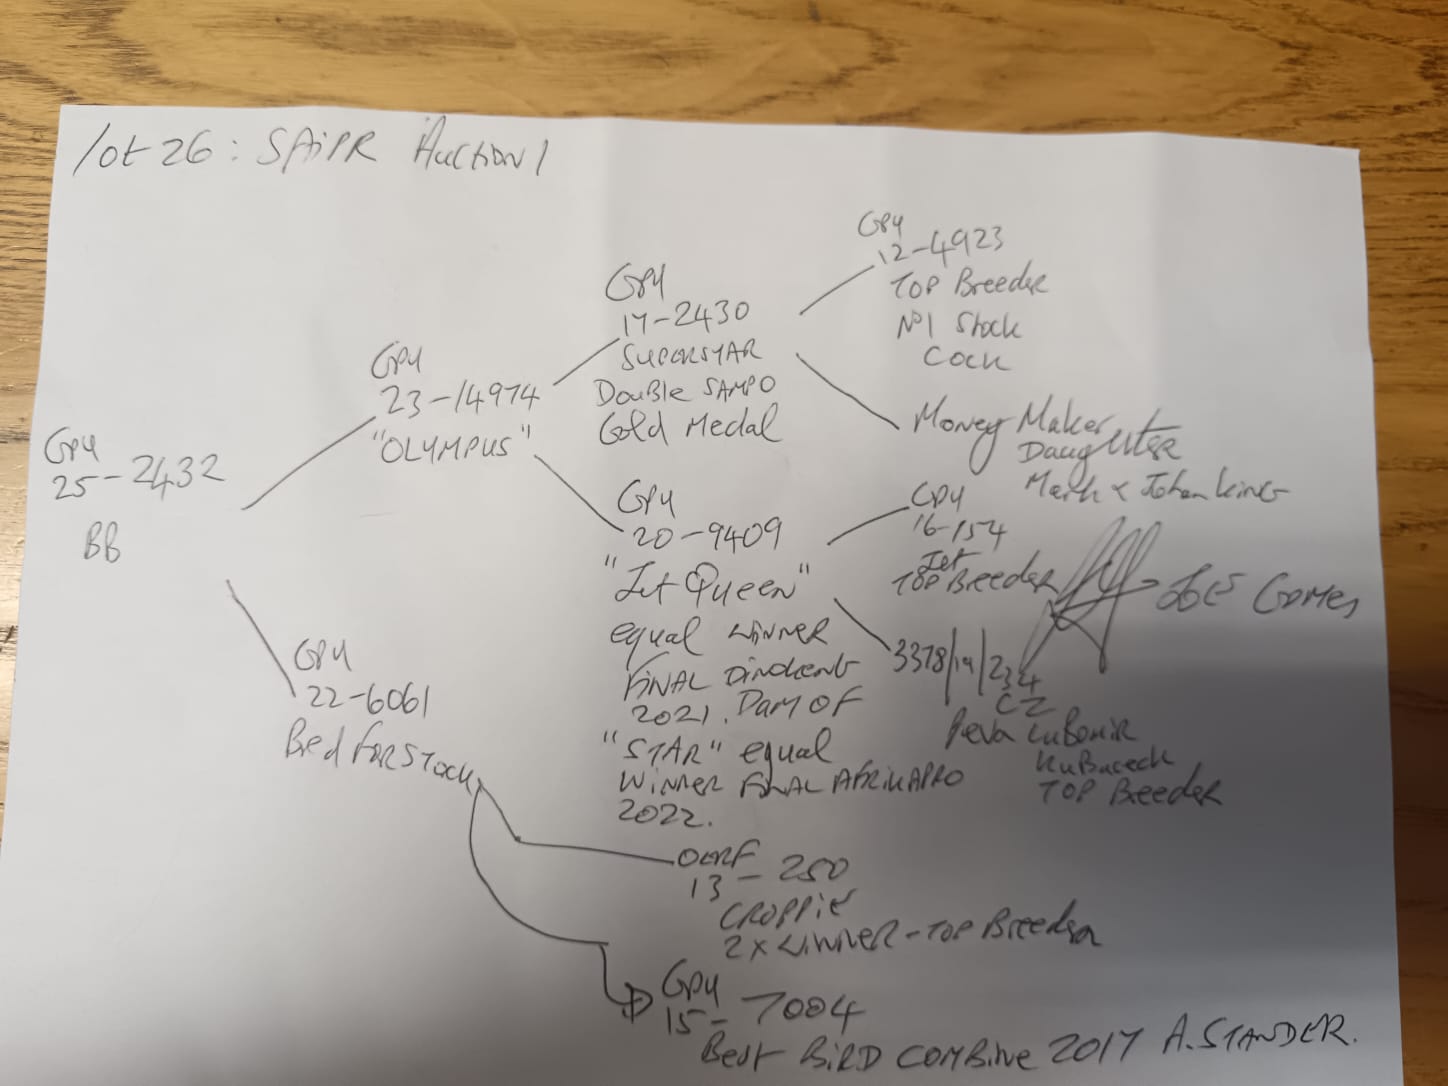 lot 26: SAIPR Auction 1
GPU
25-2432
BB
GPU
23-14974
"OLYMPUS"
GPU
22-6061
Bred for Stock
GPU
17-2430
SUPERSTAR
Double SAMPO
Gold Medal
GPU
20-9409
"Jet Queen"
equal winner
FINAL Dinokeng
2021. Dam OF
"STAR" equal
WINNER FINAL AFRIKAPRO
2022.
GPU
12-4923
TOP Breeder
No1 Stock
Cock
Money Maker
Daughter
Mark & Johan King
GPU
16-154
Jet
TOP Breeder
3378/19/234
CZ
Peva Lubomir
Kubacech
TOP Breeder
Joe Gomes
13-250
CROPPIE
2x WINNER - TOP Breeder
GPU
15-7004
Best BIRD COMBINE 2017 A.STANDER.